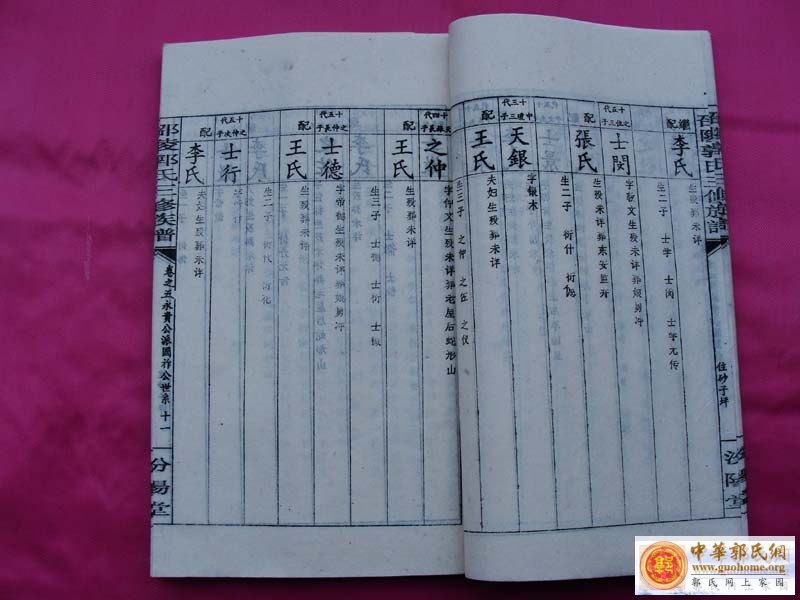 邵陵郭氏三修族譜
住砂子坪
汾陽堂
繼配
李氏
生殁葬未详
生三子 士学 士闵 士字元传
十五代
之位三子
士閔
字聖文生殁未详葬东安县并
配
張氏
生殁葬未详
生二子 衍什 衍伽
十三代
中理三子
天銀
字銀木
配
王氏
夫妇生殁葬未详
生三子 之仲 之位 之仪
十四代
天銀長子
之仲
字仲文生殁未详葬老屋后蛇形山
配
王氏
生殁葬未详
生三子 士德 士行 士俶
十五代
之仲長子
士德
字帝御生殁未详葬娘男冲
配
王氏
生殁未详葬娘男冲
生二子 衍代 衍化
十五代
之仲次子
士行
字中訏
配
李氏
夫妇生殁葬未详
邵陵郭氏三修族譜
卷之五永貴公派国祚公世系 十一
汾陽堂
中華郭氏網
www.guohome.org
郭氏网上家园